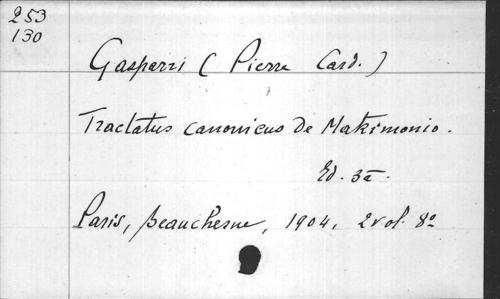 253
130
Gasparri ( Pierre Card. )
Tractatus canonicus de Matrimonio.
Ed. 3a.
Paris, Beauchesne, 1904, 2 vol. 8o